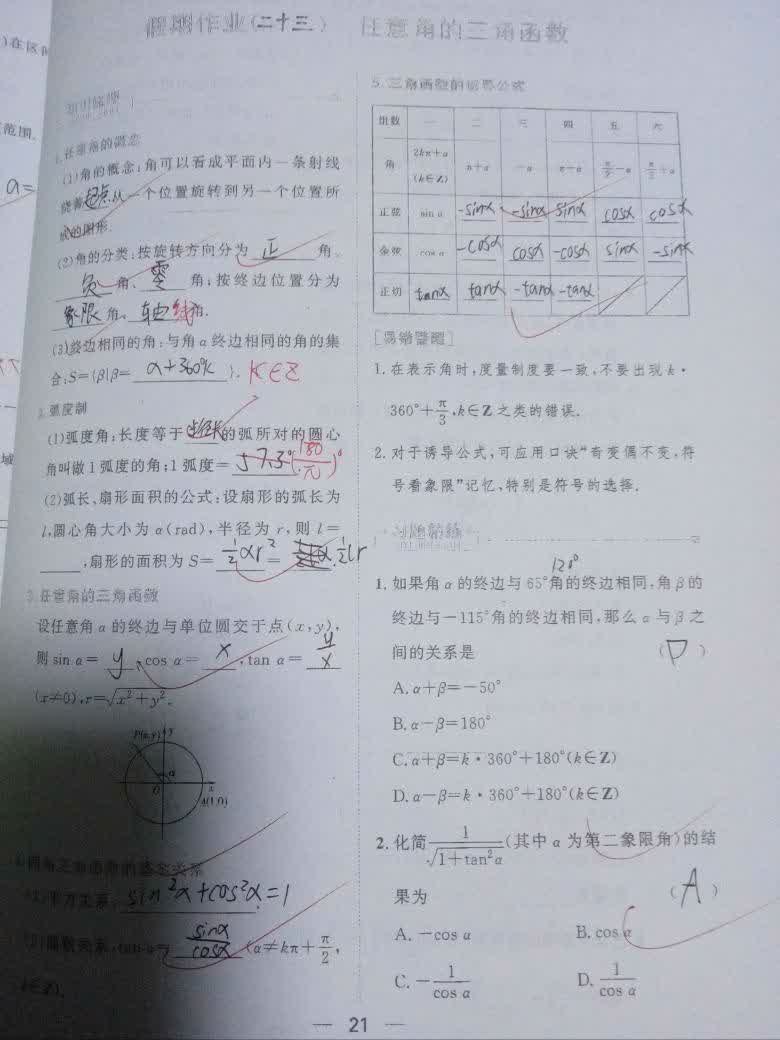 假期作业(二十三)　任意角的三角函数
)在区间
范围.
a=
域
1.任意角的概念
(1)角的概念:角可以看成平面内一条射线
绕着起点从一个位置旋转到另一个位置所
成的图形.
(2)角的分类:按旋转方向分为 正 角、
负 角、零 角;按终边位置分为
象限 角、轴线角.
(3)终边相同的角:与角α终边相同的角的集
合:S={β|β= α+360°k }. K∈Z
2.弧度制
(1)弧度角:长度等于半径长的弧所对的圆心
角叫做1弧度的角;1弧度= 57.3° (180/π)°
(2)弧长、扇形面积的公式:设扇形的弧长为
l,圆心角大小为α(rad),半径为r,则l=
____,扇形的面积为S= 1/2 αr² = 1/2 lr
3.任意角的三角函数
设任意角α的终边与单位圆交于点(x,y),
则sin α= y ,cos α= x ,tan α= y/x
(x≠0),r=√(x²+y²).
P(x,y) y
α
O x
A(1,0)
4.同角三角函数的基本关系
(1)平方关系: sin²α+cos²α=1
(2)商数关系:tan α= sinα/cosα (α≠kπ+π/2,
k∈Z).
5.三角函数的诱导公式
组数 一 二 三 四 五 六
角 2kπ+α(k∈Z) π+α -α π-α π/2-α π/2+α
正弦 sin α -sinα -sinα sinα cosα cosα
余弦 cos α -cosα cosα -cosα sinα -sinα
正切 tanα tanα -tanα -tanα
[易错警醒]
1.在表示角时,度量制度要一致,不要出现k·
360°+π/3,k∈Z之类的错误.
2.对于诱导公式,可应用口诀“奇变偶不变,符
号看象限”记忆,特别是符号的选择.
习题精练
1.如果角α的终边与65°角的终边相同,角β的
终边与-115°角的终边相同,那么α与β之
间的关系是 ( D )
A.α+β=-50°
B.α-β=180°
C.α+β=k·360°+180°(k∈Z)
D.α-β=k·360°+180°(k∈Z)
2.化简1/√(1+tan²α)(其中α为第二象限角)的结
果为 ( A )
A.-cos α B.cos α
C.-1/cos α D.1/cos α
— 21 —